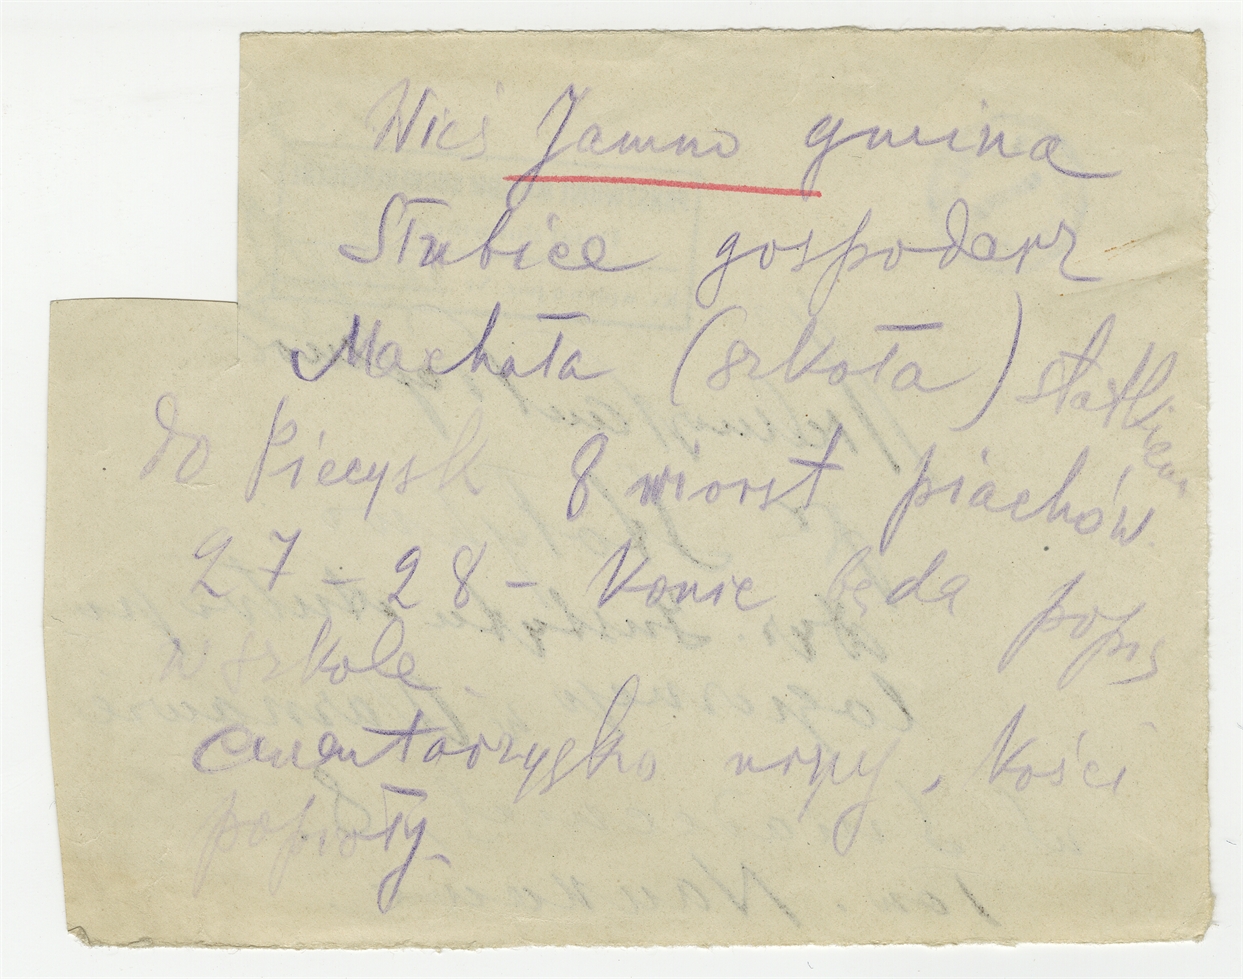 Wieś Jamno gmina
Słubice gospodarz
Machała (szkoła) statkiem
do Piecysk 8 wiorst piachów
27 – 28 – Konie będa popis
w szkole
cmentarzysko urny, kości
popioły.